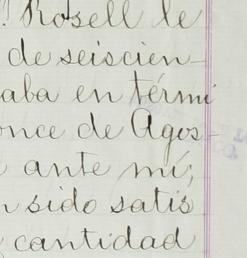 ! Rosell le
de seiscien-
aba en térmi
once de Agos-
ante mí;
n sido satis
cantidad